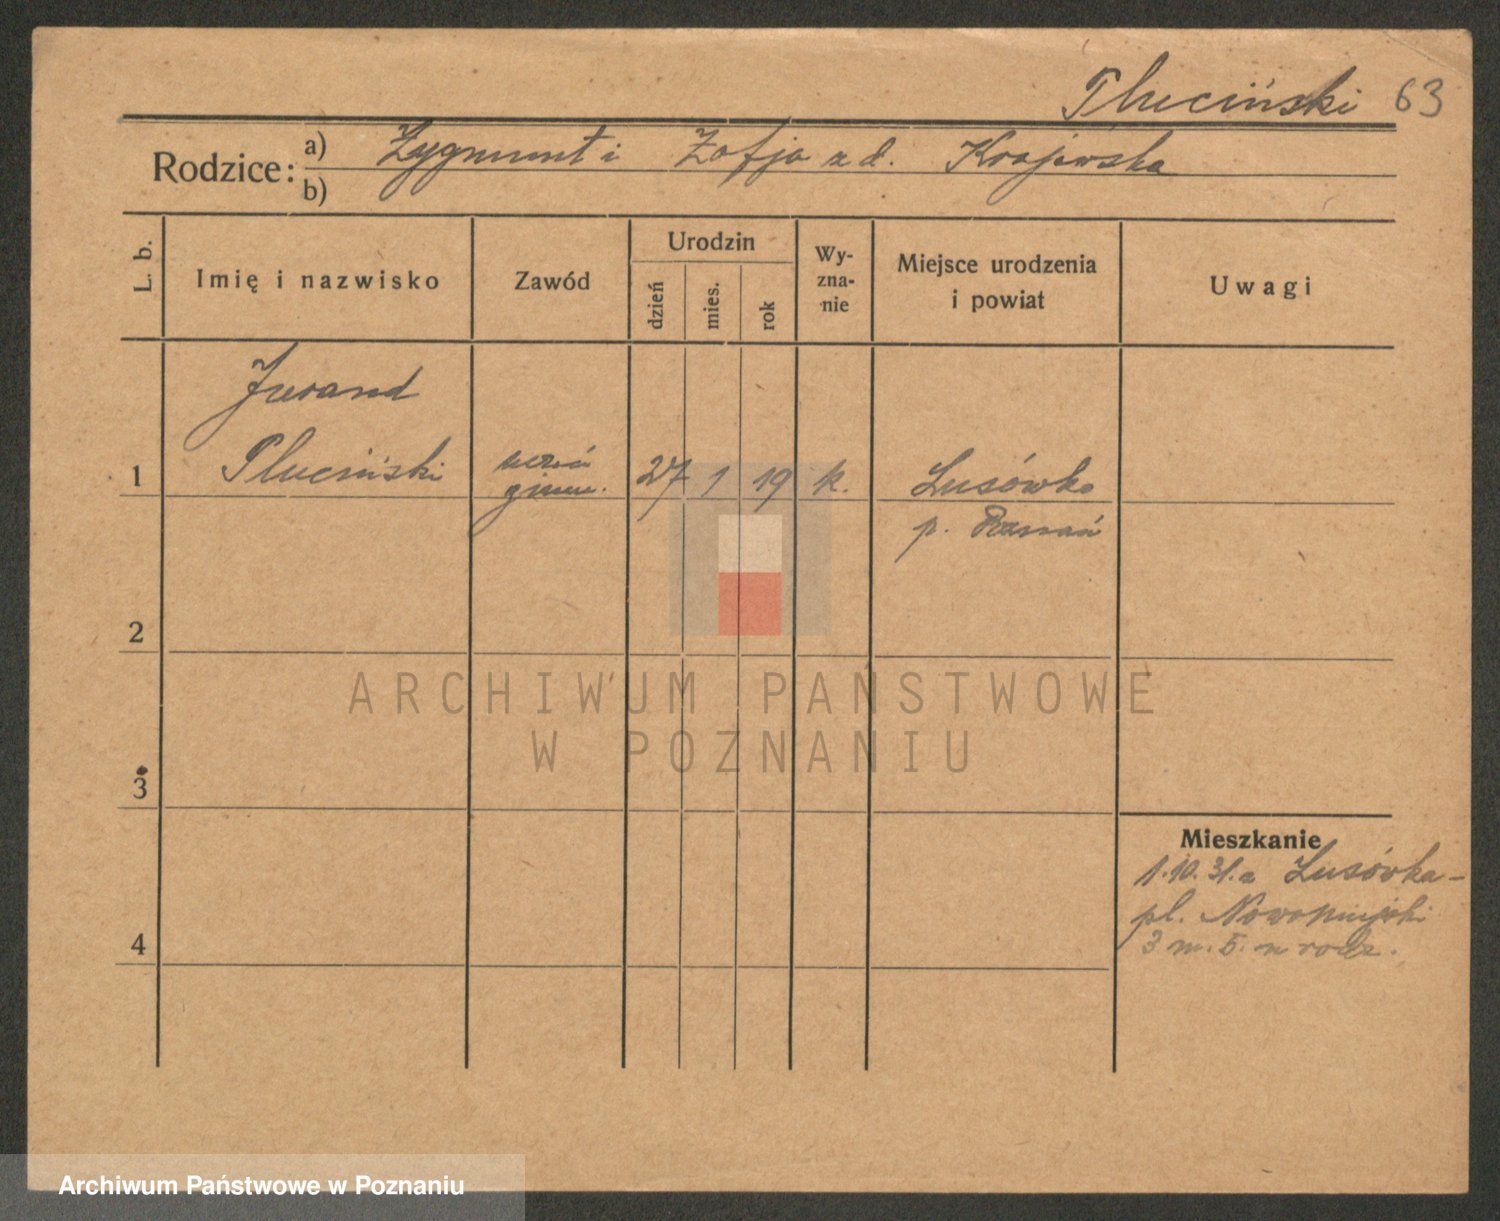 Pluciński 63
Rodzice: a) Zygmunt i Zofja z d. Krajewska
b)
L. b. Imię i nazwisko Zawód Urodzin dzień mies. rok Wy-zna-nie Miejsce urodzenia i powiat Uwagi
Jurand
1 Pluciński uczeń 27 1 19 k. Lusówko
gimn. p. Poznań
2
ARCHIWUM PAŃSTWOWE
W POZNANIU
3
Mieszkanie
1.10.31. z Lusówka -
pl. Nowomiejski
4 3 m. 5. u rodz.
Archiwum Państwowe w Poznaniu